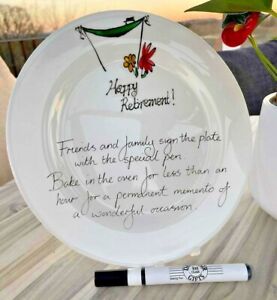 Happy
Retirement!
Friends and family sign the plate
with the special pen
Bake in the oven for less than an
hour for a permanent memento of
a wonderful occasion.
GIFTS